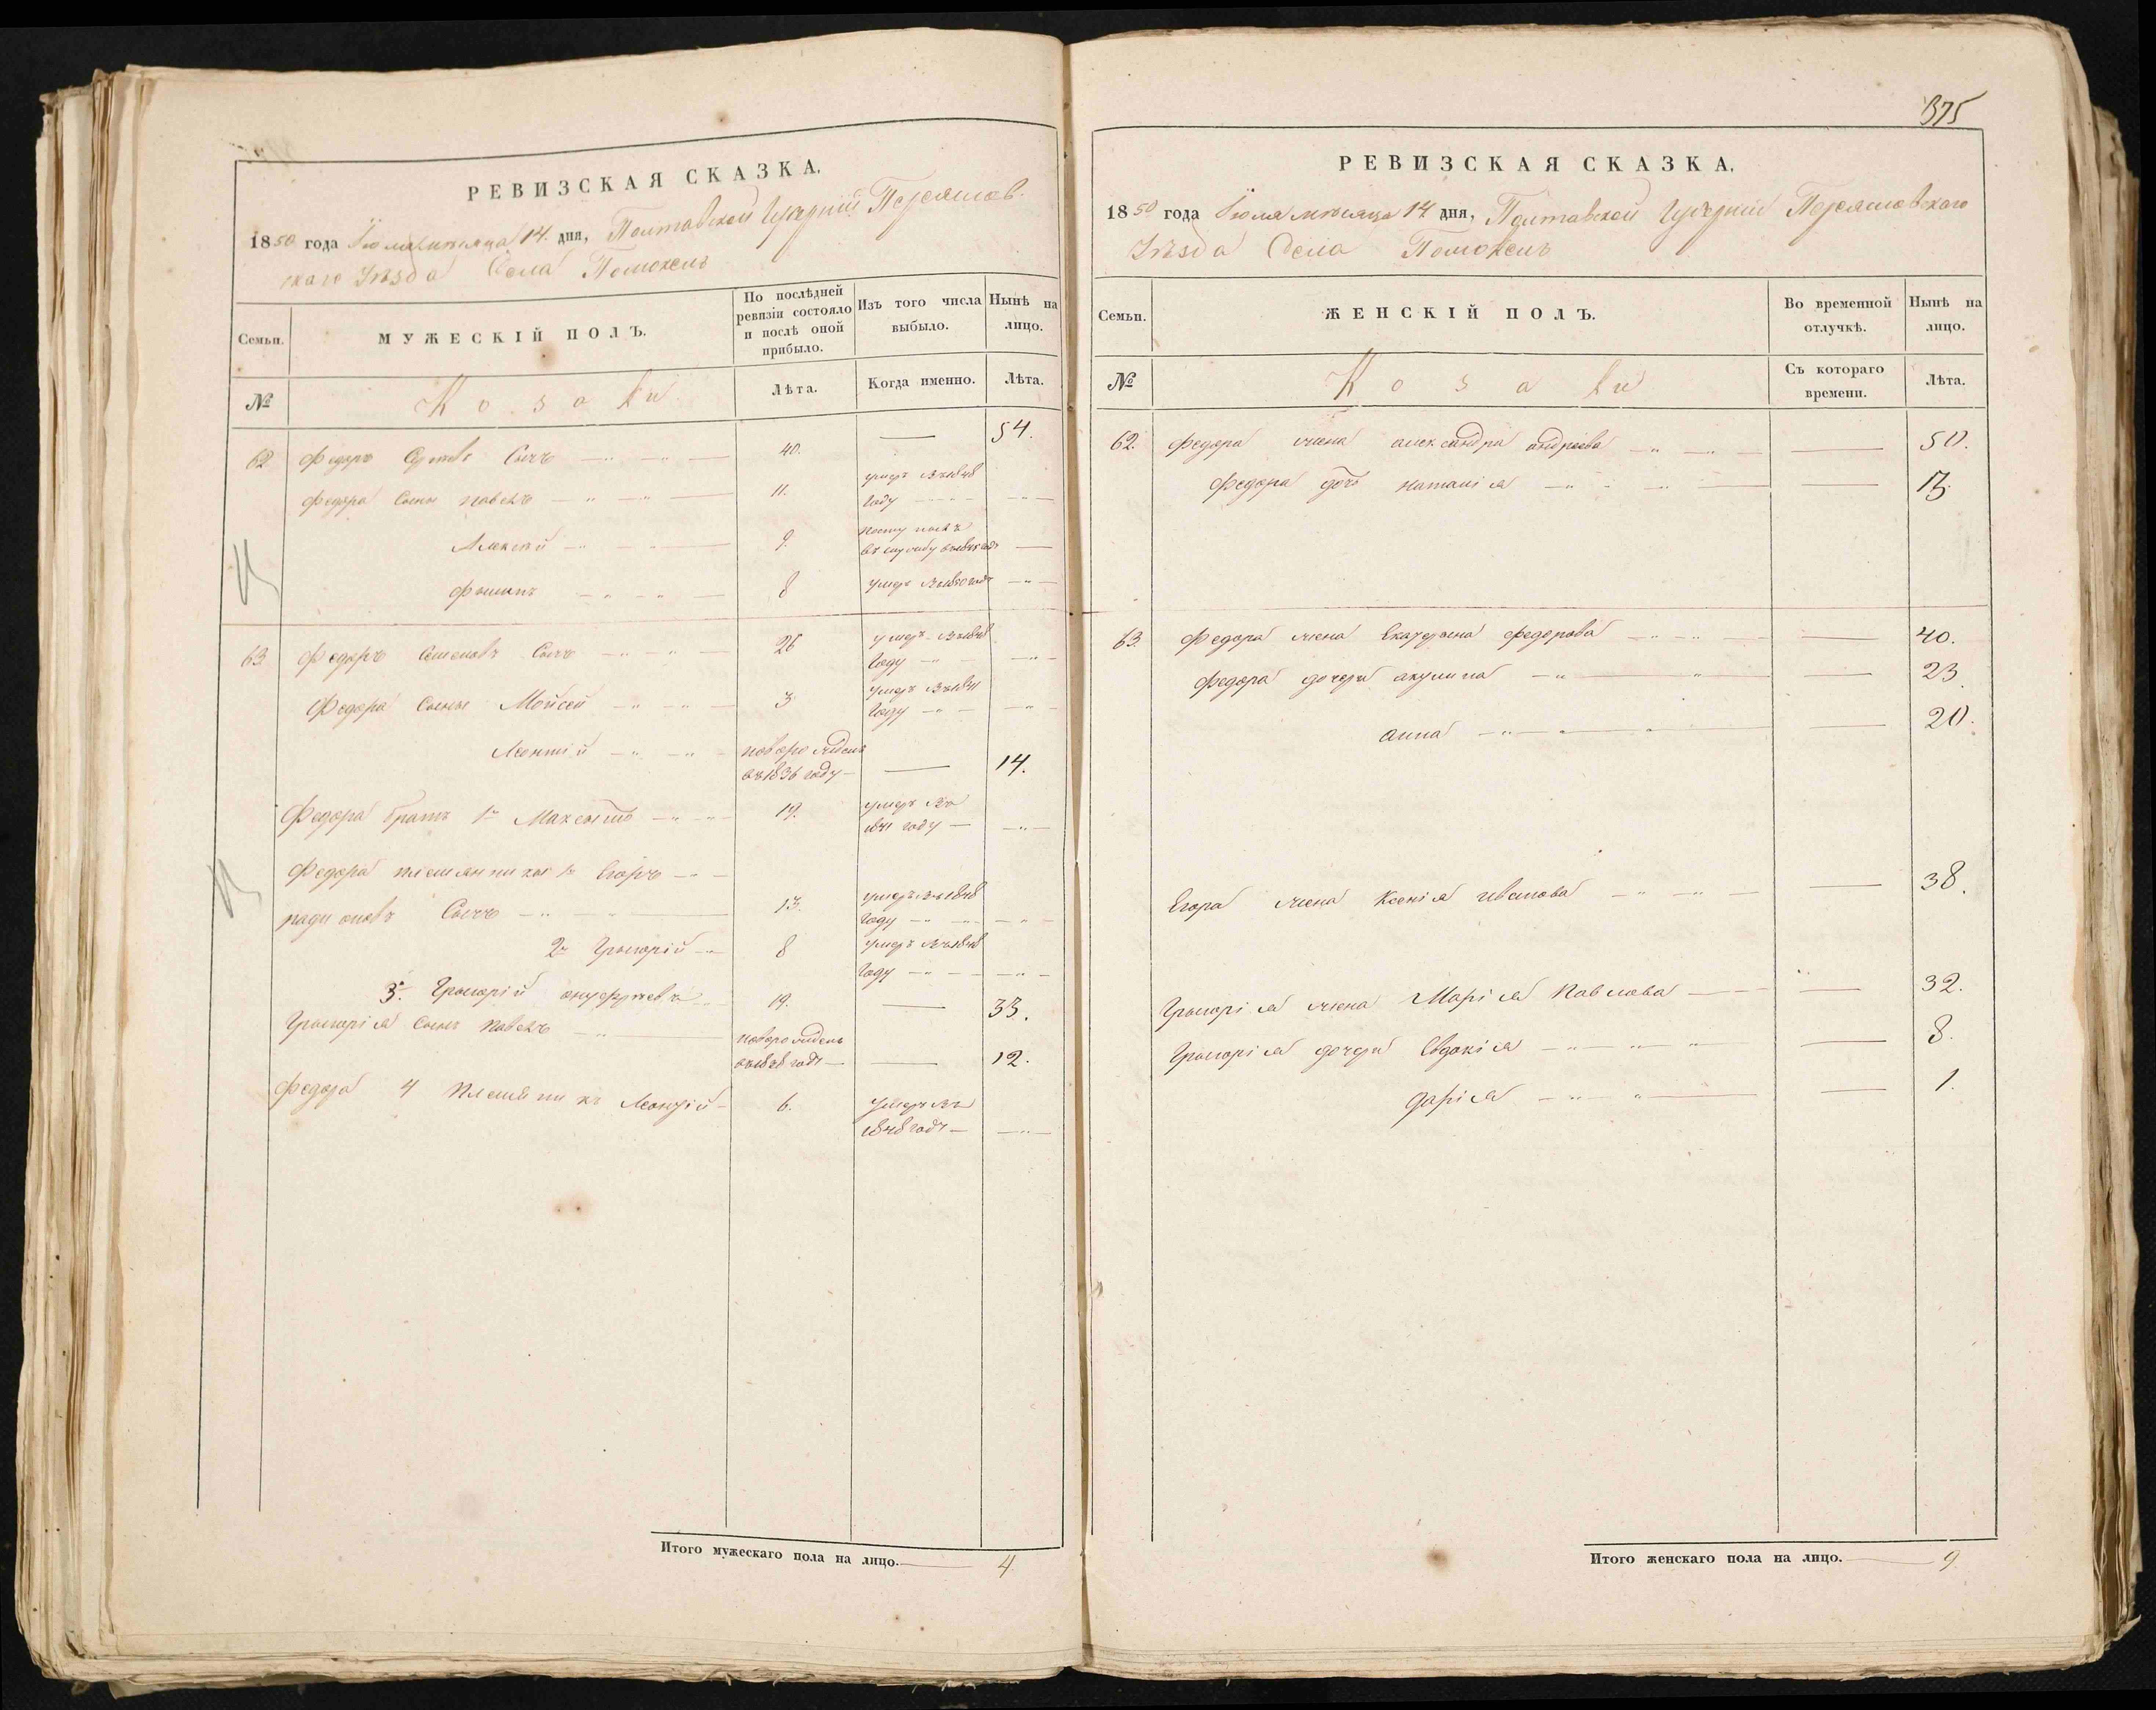 РЕВИЗСКАЯ СКАЗКА.
1850 года Іюля мѣсяца 14 дня, Полтавской Губерніи Переяслов-
скаго Уѣзда Села Помоклъ
Семьи.
МУЖЕСКІЙ ПОЛЪ.
По послѣдней ревизіи состояло и послѣ оной прибыло.
Изъ того числа выбыло.
Нынѣ на лицо.
№
Козаки
Лѣта.
Когда именно.
Лѣта.
62 Федоръ Сычъ 40. 54.
Федора Сыны Павелъ 11. умеръ в 1848
году
Алексѣй 9. поступилъ
въ службу
Филипъ 8 умеръ
63 Федоръ Семеновъ Сычъ 26 умеръ в 1848
году
Федора Сыны Мойсей 3 умеръ в 1841
году
Леонтій новорожденъ
въ 1836 году 14.
Федора братъ 1й Максымъ 19. умеръ въ
1841 году
Федора племянники 1й Егоръ
радионовъ Сычъ 13. умеръ в 1848
году
2й Григорій 8 умеръ в 1848
году
3й. Григорій онуфріевъ 19. 33.
Григорія Сынъ Павелъ новорожденъ
въ 1838 году 12.
Федора 4 племянникъ 6. умеръ въ
1848 году
Итого мужескаго пола на лицо. 4
375
РЕВИЗСКАЯ СКАЗКА.
1850 года Іюля мѣсяца 14 дня, Полтавской Губерніи Переясловскаго
Уѣзда Села Помоклъ
Семьи.
ЖЕНСКІЙ ПОЛЪ.
Во временной отлучкѣ.
Нынѣ на лицо.
№
Козаки
Съ котораго времени.
Лѣта.
62. Федора жена александра андреева 50.
Федора дочь наталія 13.
63. Федора жена Екатерина федорова 40.
Федора дочери акулина 23.
анна 20.
Егора жена Ксенія иванова 38.
Григорія жена Марія Павлова 32.
Григорія дочери Евдокія 8.
дарія 1.
Итого женскаго пола на лицо. 9.